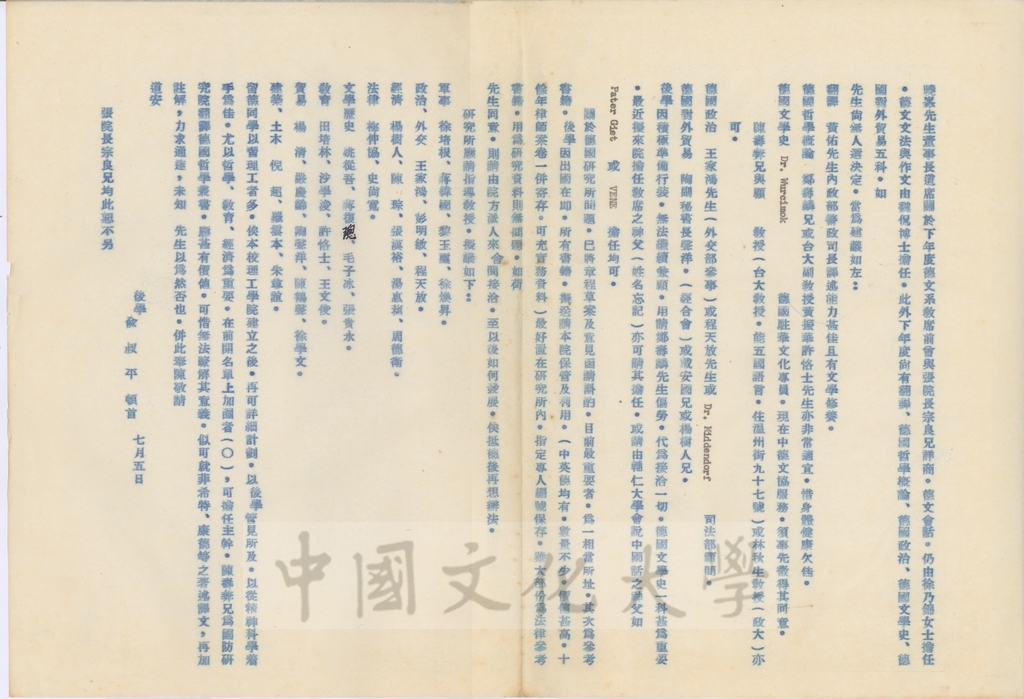 曉峯先生董事長道席關於下年度德文系敎席前會與張院長宗良兄詳商。德文會話。仍由徐乃錦女士擔任
。德文文法與作文由魏倪博士擔任。此外下年度尚有翻譯、德國哲學概論、德國政治、德國文學史、德
國對外貿易五科。如
先生尚無人選決定。當為建議如左::
翻譯 黃佑先生內政部警政司長譯述能力甚佳且有文學修養。
德國哲學概論 鄭壽麟兄或台大副敎授黃援華許恪士先生亦非常適宜。惜身體健康欠佳。
德國文學史 Dr. Wurcimok 德國駐華文化專員。現在中德文協服務。須事先徵得其同意。
陳壽奔兄與顧 敎授(台大敎授。能五國語言。住溫州街九十七號)或林秋生敎授(政大)亦
可。
德國政治 王家鴻先生(外交部參事)或程天放先生或 Dr. Middendorf 司法部顧問。
德國對外貿易 陶聲洋。(經合會)或戴安國兄或楊樹人兄。
後學因積極準備行裝。無法繼續兼顧。用請鄭壽麟先生偏勞。代為接洽一切。德國文學史一科甚為重要
。最近擬來院擔任敎席之神父(姓名忘記)亦可請其擔任。或請由輔仁大學會說中國話之神父如
Pater Giet 或 VENE 擔任均可。
關於德國研究所問題。已將章程草案及意見函請斟酌。目前最重要者。為一相當所址。其次為參考
書籍。後學因出國在即。所有書籍。擬送請本院保管及利用。(中英德均有。數量不少。價值甚高。十
餘年律師案卷一併寄存。可充實務資料)最好置在研究所內。指定專人編號保存。雖大部份為法律參考
書籍。用為研究資料則無問題。如荷
先生同意。則請由院方派人來會間接洽。至以後如何發展。俟抵德後再想辦法。
研究所應請指導敎授。擬議如下::
軍事 徐培根、蔣緯國、黎玉璽、徐煥昇。
政治、外交 王家鴻、彭明敏、程天放。
經濟 楊樹人、陳 琮、張漢裕、湯惠蓀、周德偉。
法律 梅仲協、史尚寬。
文學歷史 姚從吾、蔣復璁、毛子水、張貴永。
敎育 田培林、沙學浚、許恪士、王文俊。
貿易 楊 清、嚴慶齡、陶聲洋、陳鶴聲、徐學文。
建築、土木 倪 超、羅雲本、朱尊誼。
留德同學以習理工者多。俟本校理工學院建立之後。再可詳細計劃。以後學管見所及。以從精神科學着
手為佳。尤以哲學、敎育、經濟為重要。在前開名單上加圈者(○),可擔任主幹。陳壽奔兄為國防研
究院翻譯德國哲學叢書。應甚有價值。可惜無法瞭解其意義。似可就菲希特、康德等之著述譯文,再加
註解,力求通達,未知 先生以為然否也。併此奉陳敬請
道安
張院長宗良兄均此恕不另
後學 俞叔平 頓首 七月五日
中國文化大學